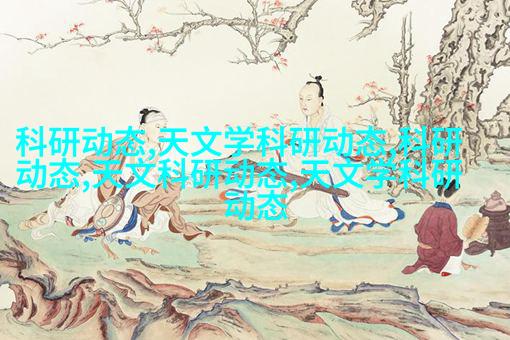 科研动态,天文学科研动态,科研
动态,天文科研动态,天文学科研
动态